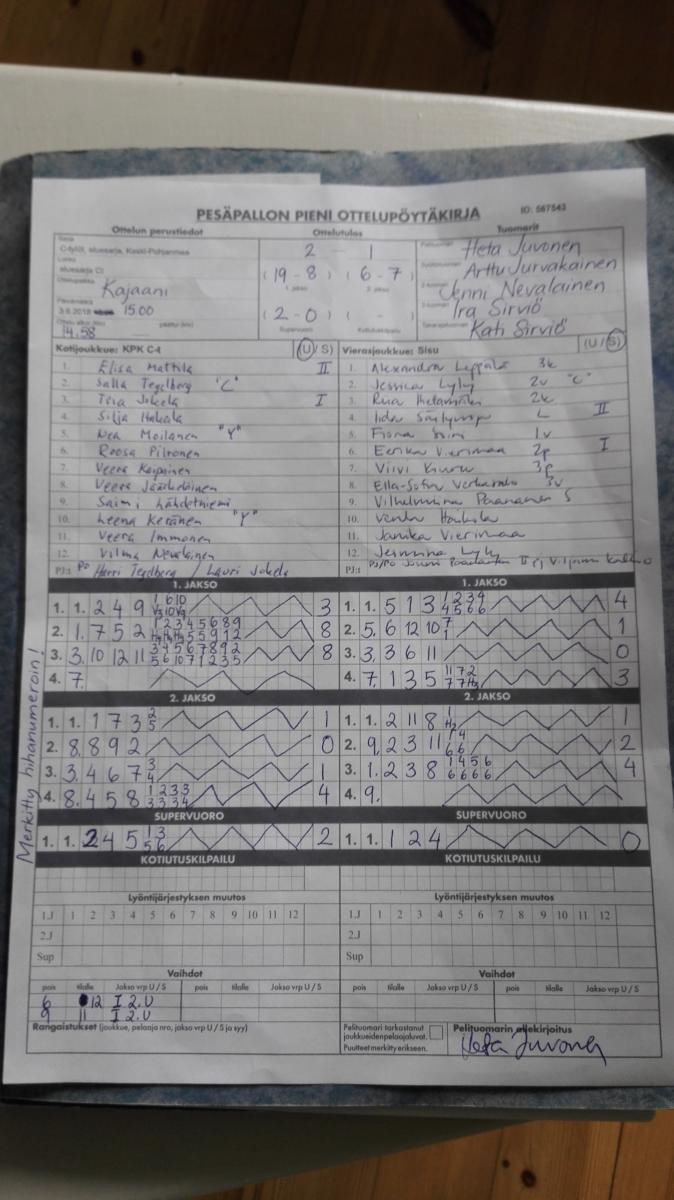 PESÄPALLON PIENI OTTELUPÖYTÄKIRJA
ID: 567543
Ottelun perustiedot
Ottelutulos
Tuomarit
C-tytöt, aluesarja, Keski-Pohjanmaa
2 - 1
Heta Juvonen
aluesarja C1
(19-8) (6-7)
Arttu Jurvakainen
Kajaani
Jenni Nevalainen
15.00
(2-0) ( - )
Ira Sirviö
14.58
Kati Sirviö
Kotijoukkue: KPK C-t (U/S)
1. Elisa Mattila II
2. Salla Tegelberg "C"
3. Tuia Jokela I
4. Silja Hakala
5. Nea Moilanen "Y"
6. Roosa Piltonen
7. Veera Karppinen
8. Veera Jääskeläinen
9. Saimi Lähdetniemi
10. Leena Keränen "Y"
11. Veera Immonen
12. Vilma Nevalainen
PJ:t PO Harri Tegelberg / Lauri Jokela
Vierasjoukkue: Sisu (U/S)
1. Alexandra Leppälä 3k
2. Jessica Lyly 2v "C"
3. 2k
4. Iida L II
5. Fiona 1v
6. Eerika Vierimaa 2p I
7. Viivi 3p
8. Ella-Sofia 3v
9. Vilhelmiina Paananen S
10. Venla
11. Janika Vierimaa
12. Lyly
PJ:t
Merkitty hihanumeroin!
1. JAKSO
1. 1. 2 4 9 1 6 10 3
2. 1. 7 5 2 1 2 3 4 5 6 8 9 8
3. 3. 10 12 11 3 4 5 6 7 8 9 2 8
5 6 10 7 1 2 3 5
4. 7.
1. JAKSO
1. 1. 5 1 3 1 2 3 4 4
4 5 6 6
2. 5. 6 12 10 7 1
1
3. 3. 3 6 11 0
4. 7. 1 3 5 11 7 2 3
2. JAKSO
1. 1. 1 7 3 2 1
5
2. 8. 8 9 2 0
3. 3. 4 6 7 3 1
4
4. 8. 4 5 8 1 2 3 3 4
3 3 3 4
2. JAKSO
1. 1. 2 11 8 1 1
2. 9. 2 3 11 1 4 2
6 6
3. 1. 2 3 8 1 4 5 6 4
6 6 6 6
4. 9.
SUPERVUORO
1. 1. 2 4 5 1 3 2
5 6
SUPERVUORO
1. 1. 1 2 4 0
KOTIUTUSKILPAILU
KOTIUTUSKILPAILU
Lyöntijärjestyksen muutos
1.J 1 2 3 4 5 6 7 8 9 10 11 12
2.J
Sup
Lyöntijärjestyksen muutos
1.J 1 2 3 4 5 6 7 8 9 10 11 12
2.J
Sup
Vaihdot
pois tilalle Jakso vrp U / S pois tilalle Jakso vrp U / S
6 12 I 2.U
9 11 I 2.U
Vaihdot
pois tilalle Jakso vrp U / S pois tilalle Jakso vrp U / S
Rangaistukset (joukkue, pelaaja nro, jakso vrp U / S ja syy)
Pelituomari tarkastanut
joukkueiden pelaajaluvat.
Puutteet merkitty erikseen.
Pelituomarin allekirjoitus
Heta Juvonen